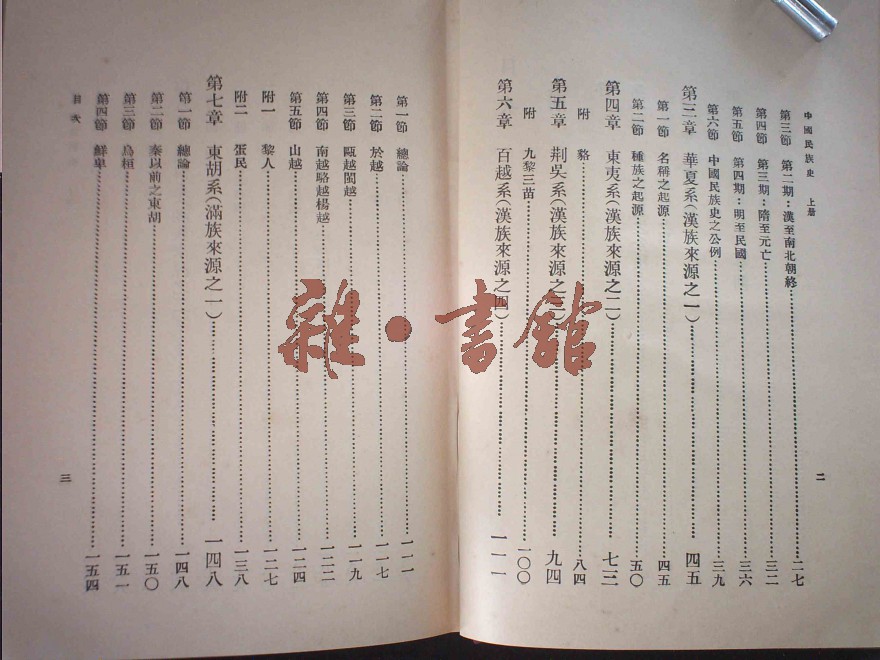 中國民族史 上册
第三節 第二期：漢至南北朝終 二七
第四節 第三期：隋至元亡 三二
第五節 第四期：明至民國 三六
第六節 中國民族史之公例 三九
第三章 華夏系（漢族來源之一） 四五
第一節 名稱之起源 四五
第二節 種族之起源 五〇
第四章 東夷系（漢族來源之二） 七三
附 貉 八四
第五章 荆吳系（漢族來源之三） 九四
附 九黎三苗 一〇〇
第六章 百越系（漢族來源之四） 一一一
二
第一節 總論 一一一
第二節 於越 一一七
第三節 甌越閩越 一一九
第四節 南越駱越楊越 一二二
第五節 山越 一二四
附一 黎人 一二七
附二 蜑民 一三八
第七章 東胡系（滿族來源之一） 一四八
第一節 總論 一四八
第二節 秦以前之東胡 一五〇
第三節 烏桓 一五一
第四節 鮮卑 一五四
目次
三
雜·書館